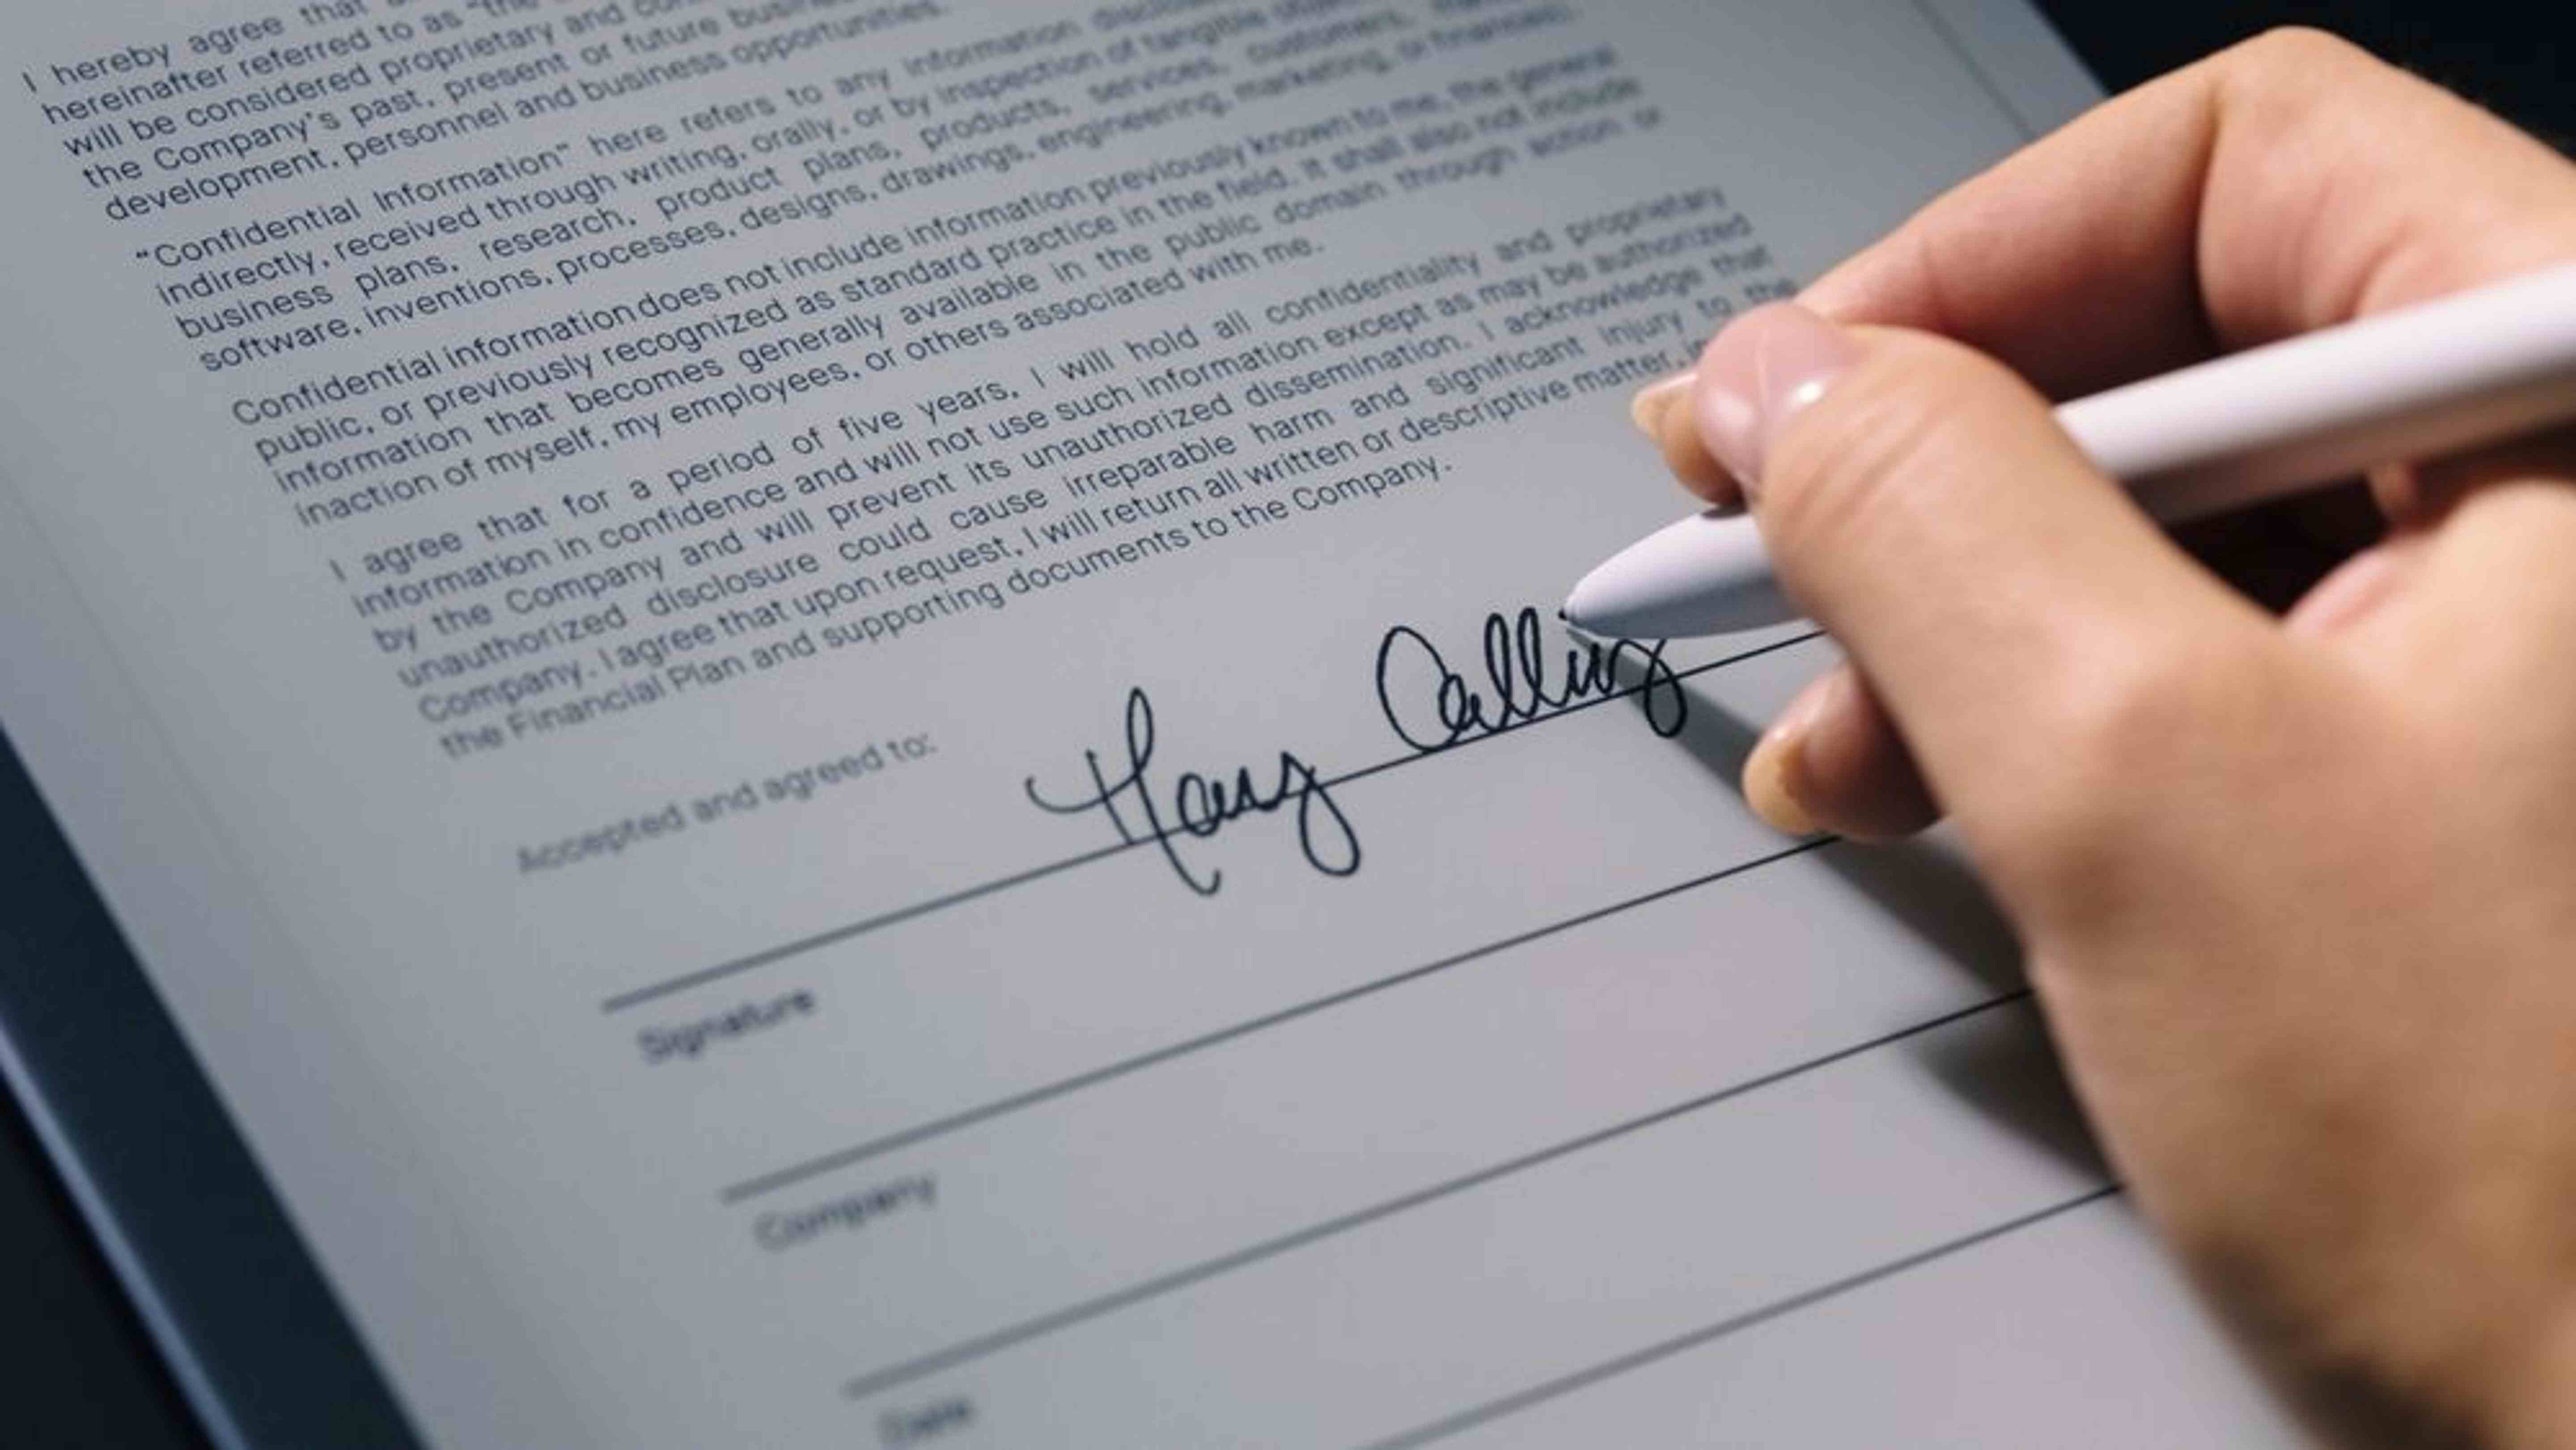 I hereby agree that
hereinafter referred to as "the
will be considered proprietary and
the Company's past, present or future
development, personnel and business opportunities.
"Confidential Information" here refers to any information
indirectly, received through writing, orally, or by inspection of tangible
business plans, research, product plans, products, services, customers,
software, inventions, processes, designs, drawings, engineering, marketing, or finances.
Confidential information does not include information previously known to me, the general
public, or previously recognized as standard practice in the field. It shall also not include
information that becomes generally available in the public domain through action or
inaction of myself, my employees, or others associated with me.
I agree that for a period of five years, I will hold all confidentiality and proprietary
information in confidence and will not use such information except as may be authorized
by the Company and will prevent its unauthorized dissemination. I acknowledge that
unauthorized disclosure could cause irreparable harm and significant injury to the
Company. I agree that upon request, I will return all written or descriptive matter,
the Financial Plan and supporting documents to the Company.
Accepted and agreed to:
Signature
Company
Date